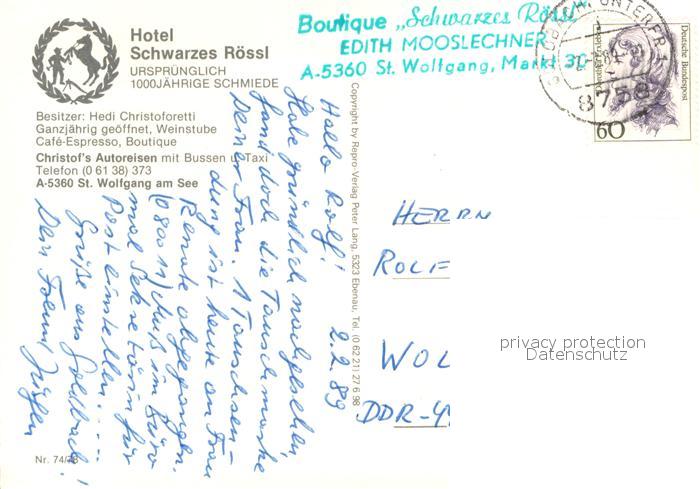 Hotel
Schwarzes Rössl
URSPRÜNGLICH
1000JÄHRIGE SCHMIEDE
Besitzer: Hedi Christoforetti
Ganzjährig geöffnet, Weinstube
Café-Espresso, Boutique
Christof's Autoreisen mit Bussen u. Taxi
Telefon (0 61 38) 373
A-5360 St. Wolfgang am See
Boutique „Schwarzes Rössl"
EDITH MOOSLECHNER
A-5360 St. Wolfgang, Markt 30
8758
60
Deutsche Bundespost
Copyright by Repro-Verlag Peter Lang, 5323 Ebenau, Tel. (0 62 21) 27 6 98
2.2.89
Hallo Rolf!
Habe gründlich nachgesehen,
fand doch die Tauschmarke
Deiner Frau. 1 Tauschsen-
dung ist heute an Frau
Renate abgegangen.
(080011) Muß im Büro
mal Sekretärin für
Post einstellen.....
Grüße aus Goldbach!
Dein Freund Jürgen
HERRN
ROLF
WOL
DDR-
privacy protection
Datenschutz
Nr. 74/78